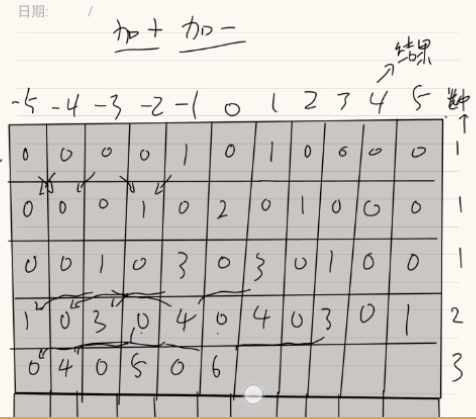 日期: /
加+ 加-
结果
-5 -4 -3 -2 -1 0 1 2 3 4 5
0 0 0 0 1 0 1 0 0 0 0 1
0 0 0 1 0 2 0 1 0 0 0 1
0 0 1 0 3 0 3 0 1 0 0 1
1 0 3 0 4 0 4 0 3 0 1 2
0 4 0 5 0 6 3